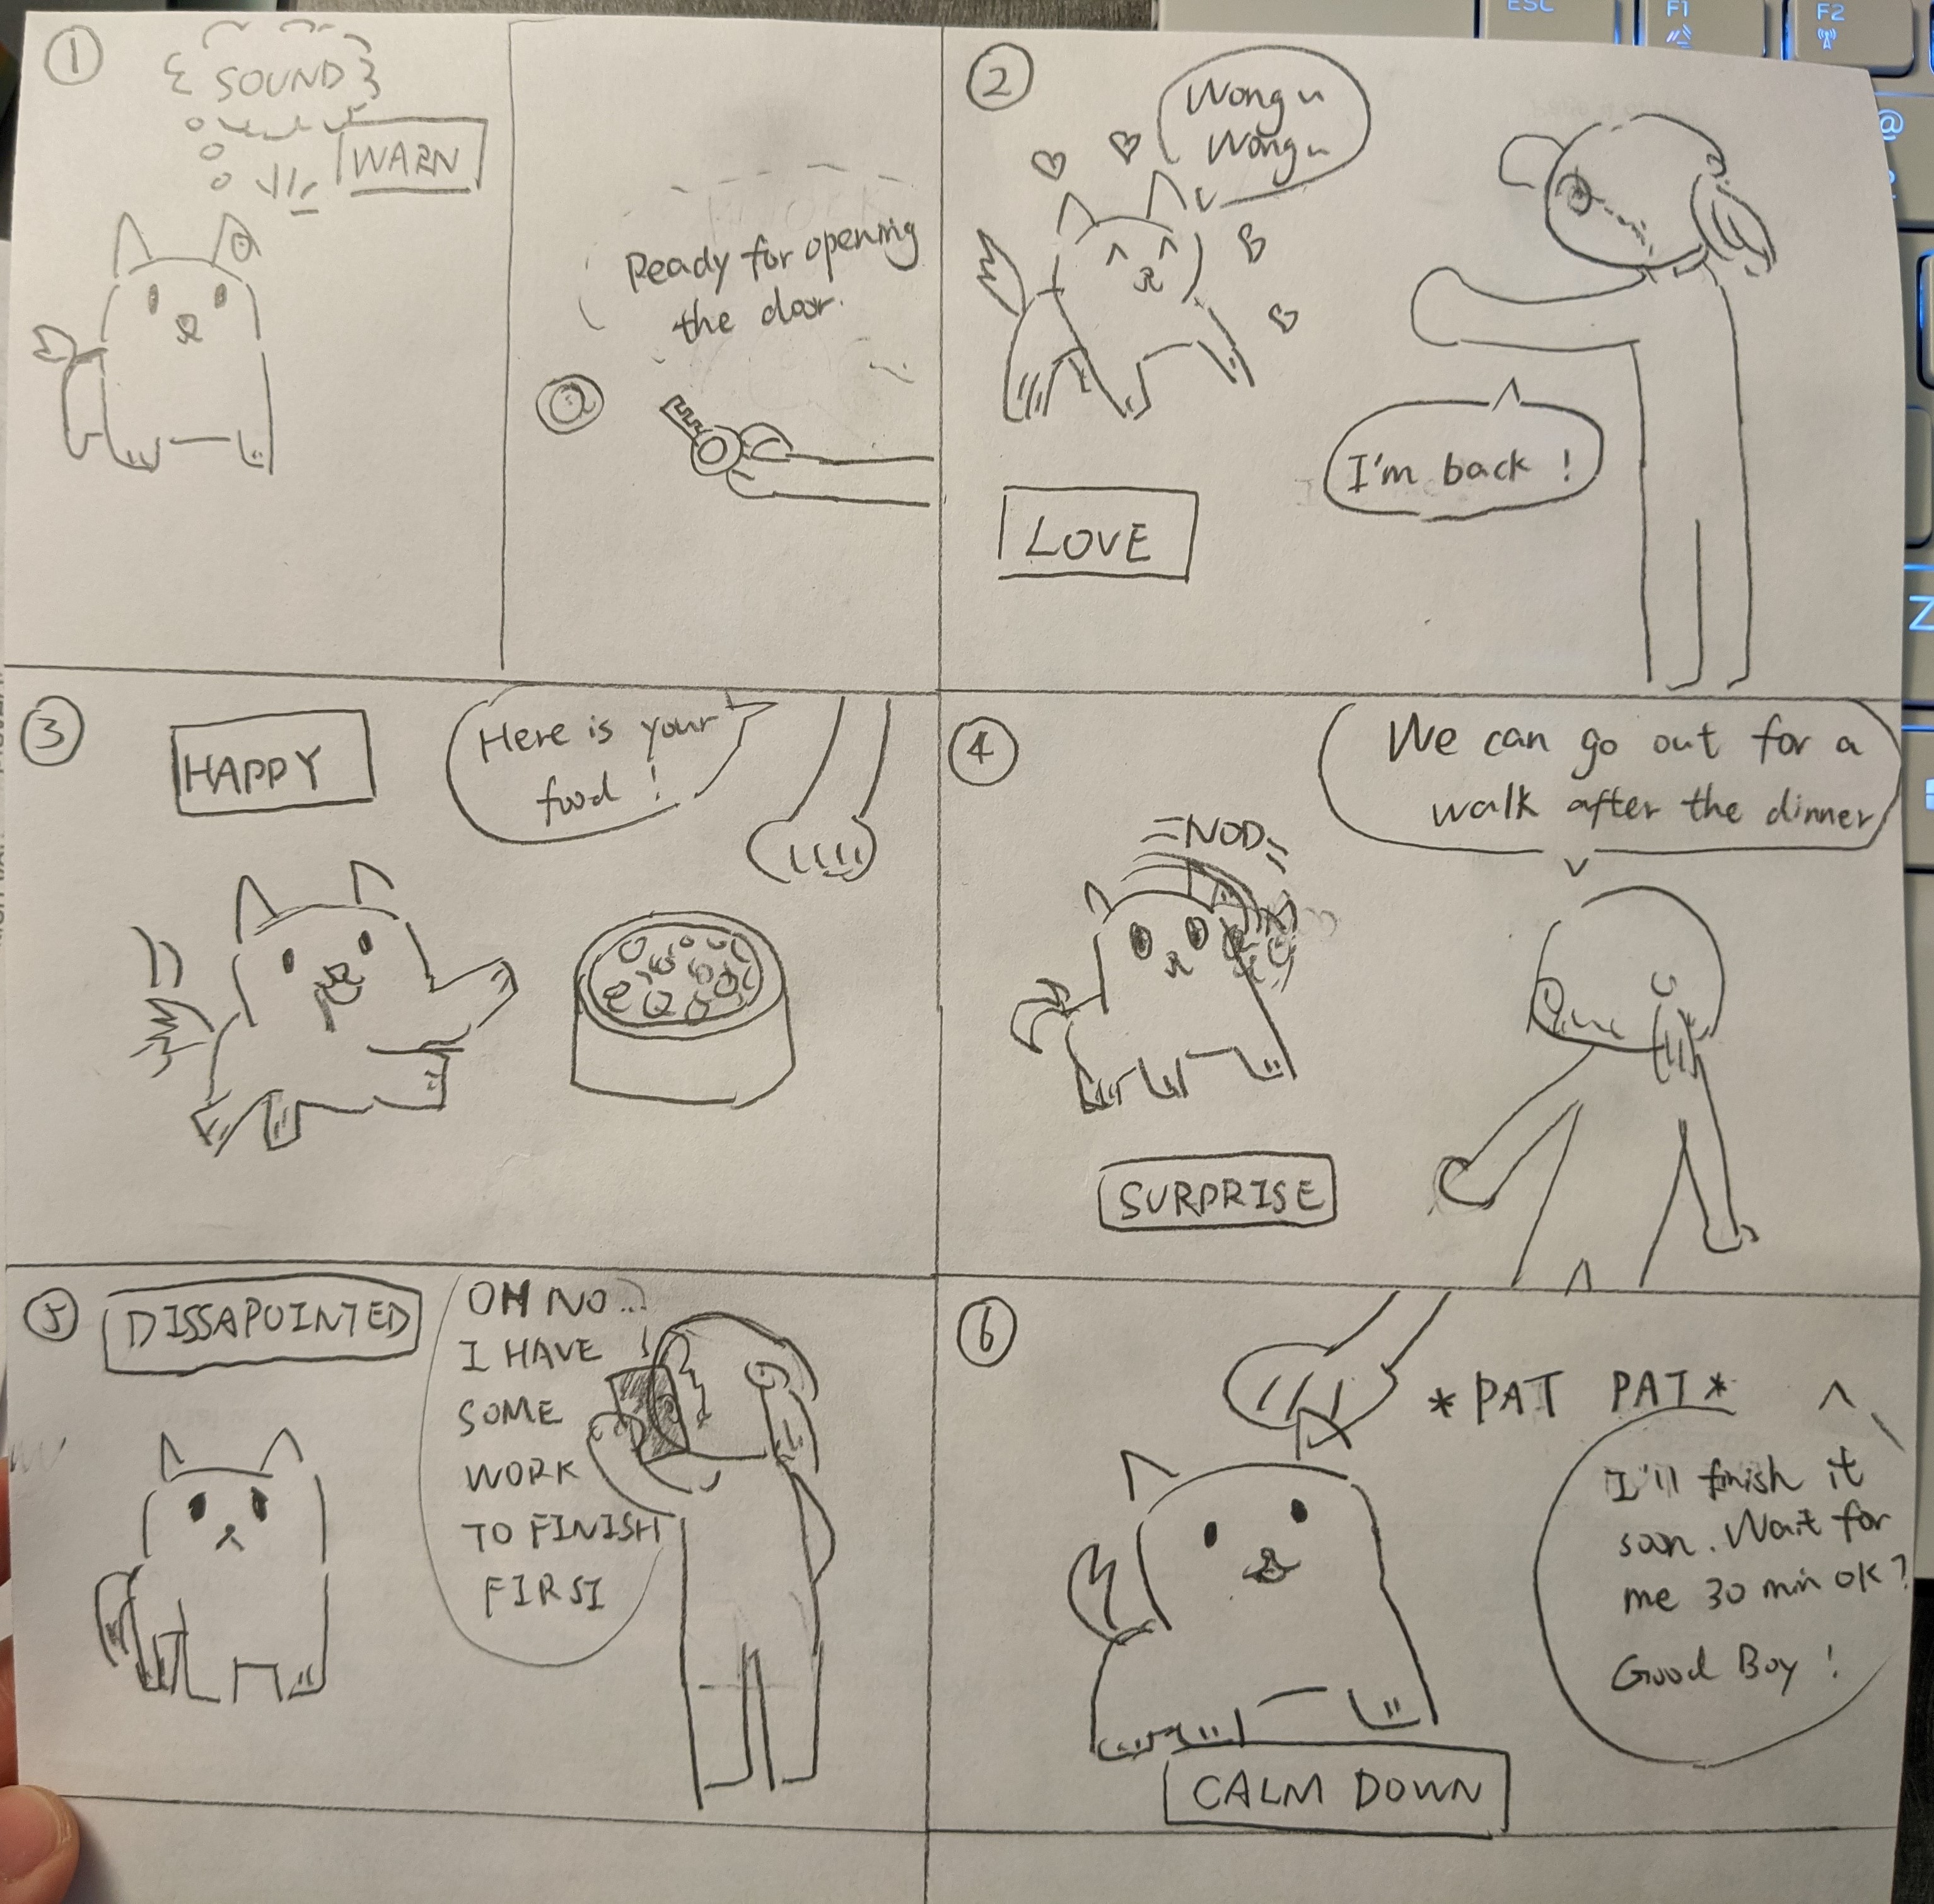 1
SOUND
WARN
Ready for opening
the door.
2
Wong~
Wong~
I'm back !
LOVE
3
HAPPY
Here is your
food !
4
We can go out for a
walk after the dinner
NOD
SURPRISE
5
DISSAPOINTED
OH NO...
I HAVE
SOME
WORK
TO FINISH
FIRST
6
*PAT PAT*
I'll finish it
soon. Wait for
me 30 min ok?
Good Boy !
CALM DOWN
ESC
F1
F2
@
Z